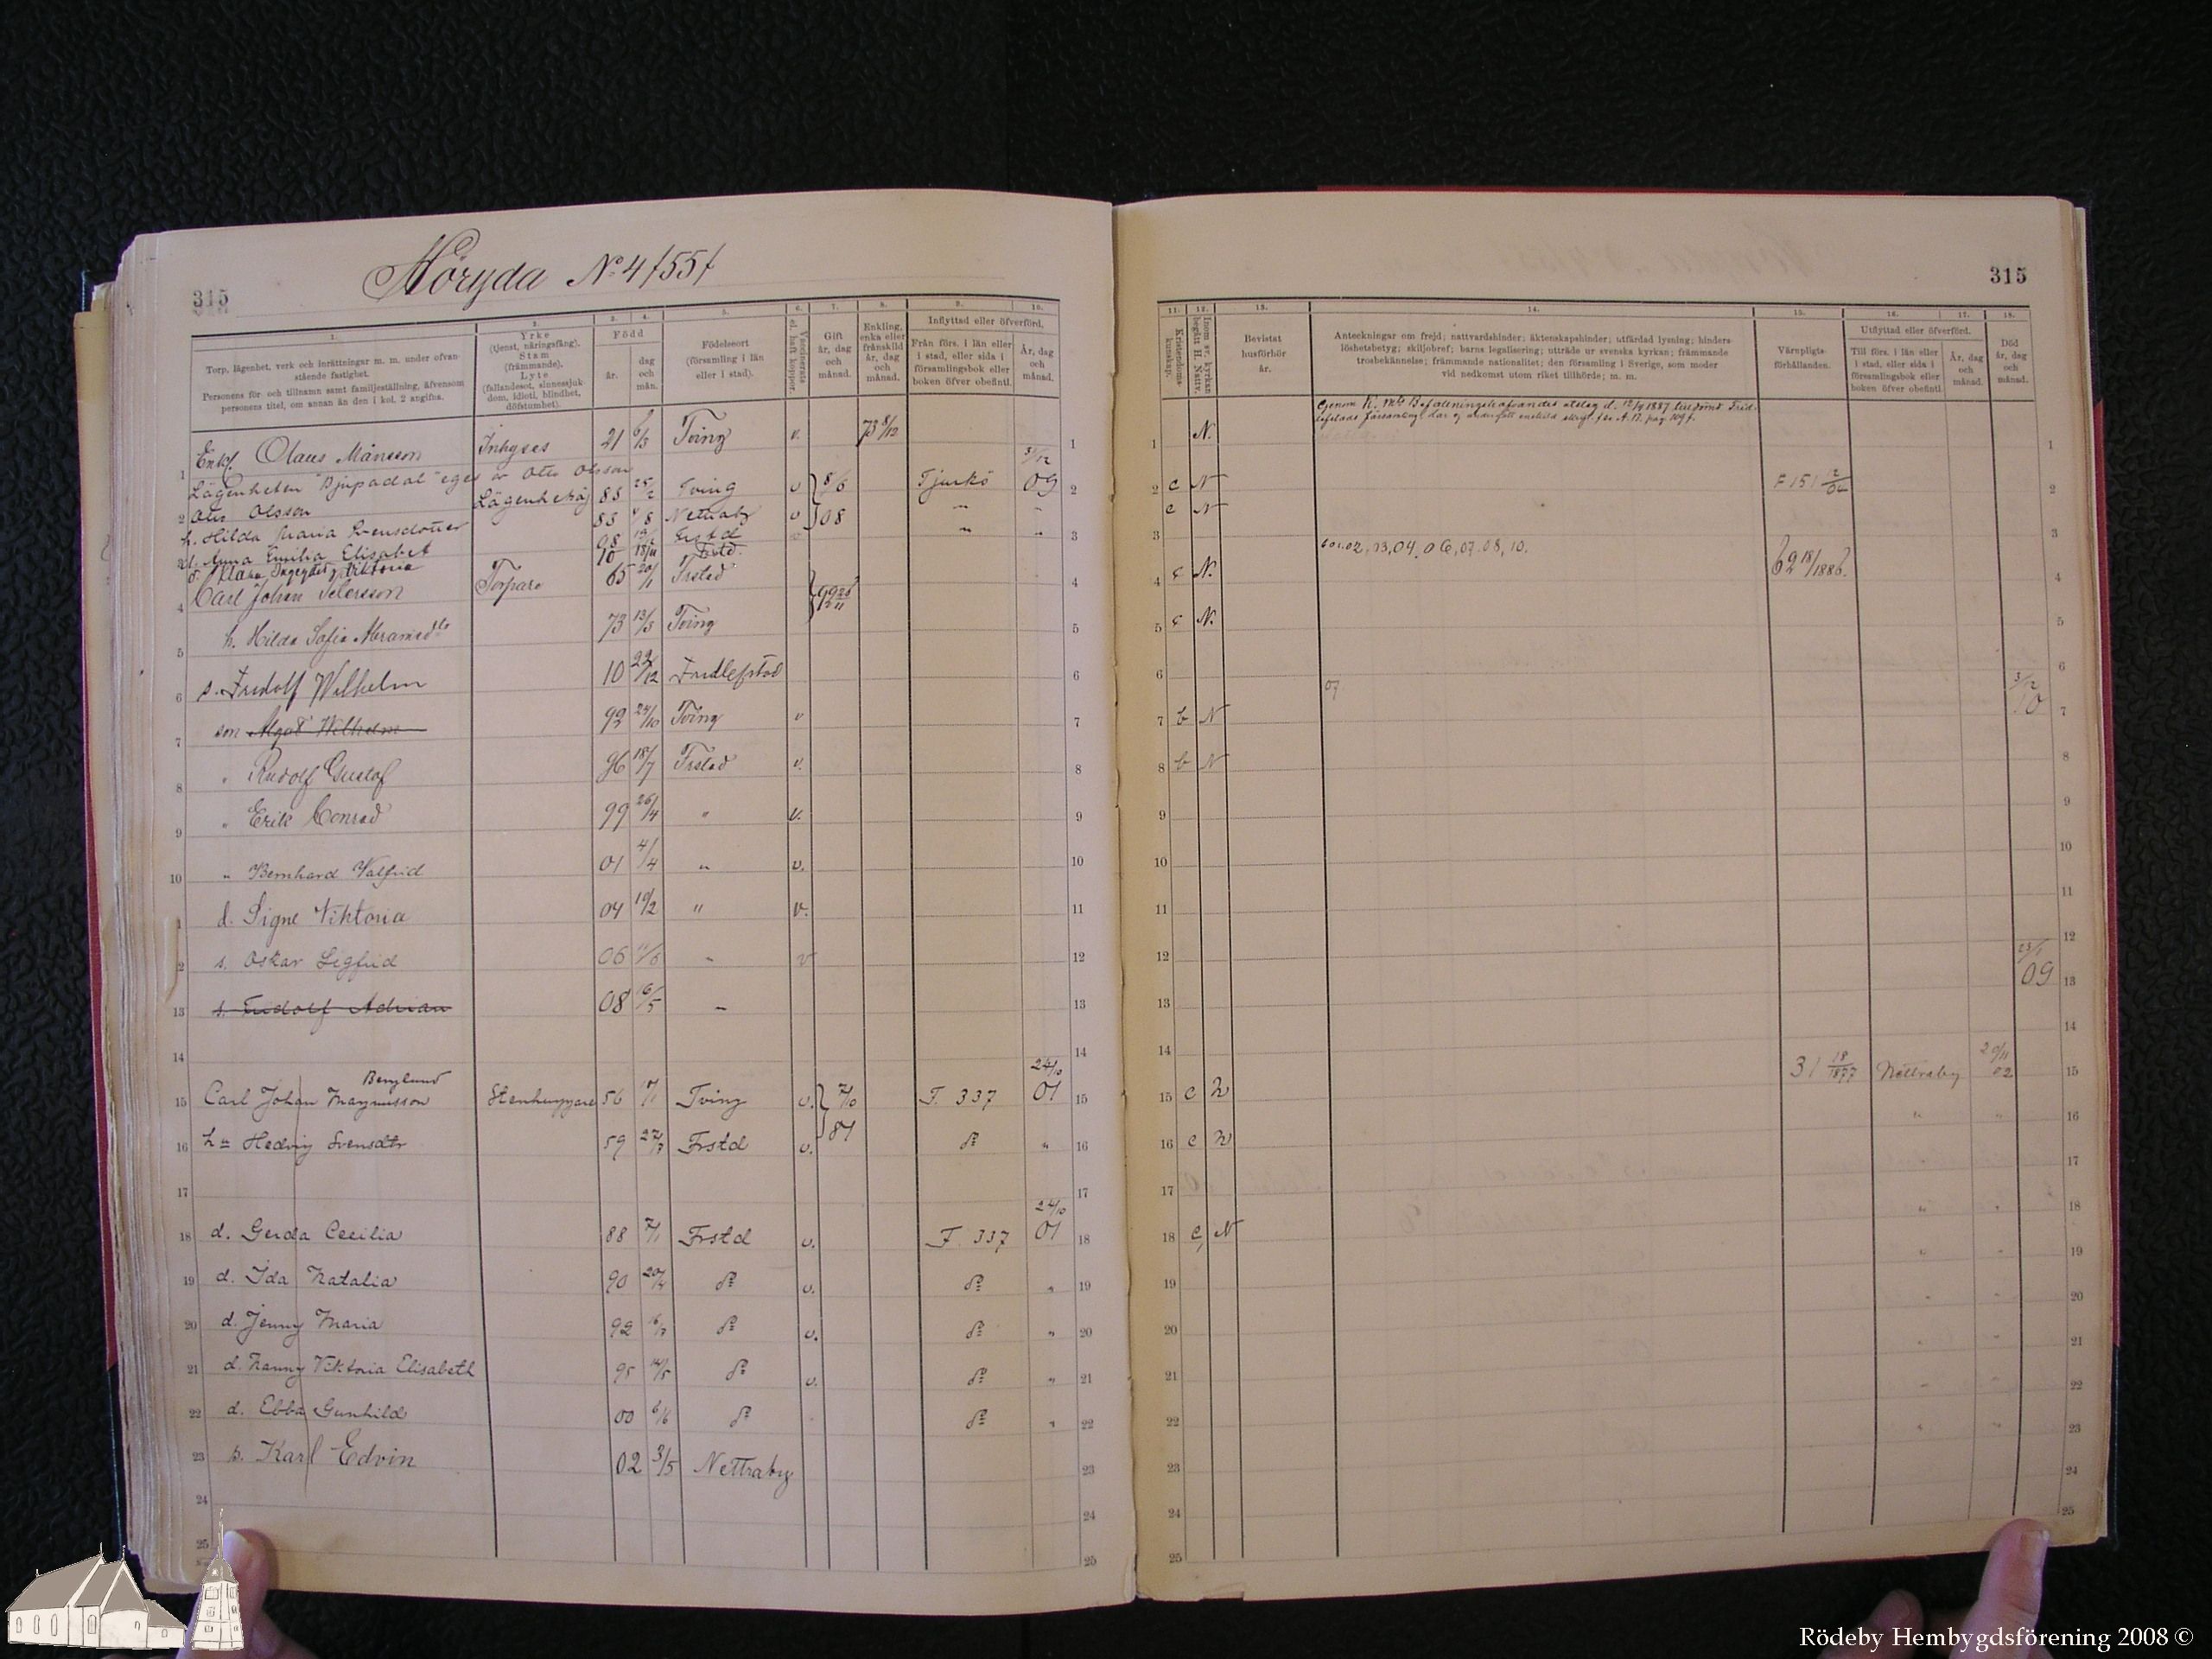 315
Höryda No 4 /55/
1.
Torp, lägenhet, verk och inrättningar m. m. under ofvan-
stående fastighet.
Personens för- och tillnamn samt familjeställning, äfvensom
personens titel, om annan än den i kol. 2 angifna.
2.
Yrke
(tjenst, näringsfång).
Stam
(främmande).
Lyte
(fallandesot, sinnessjuk-
dom, idioti, blindhet,
döfstumhet).
3. 4.
Född
år.
dag
och
mån.
5.
Födelseort
(församling i län
eller i stad).
6.
Vaccinerats
el. haft koppor.
7.
Gift
år, dag
och
månad.
8.
Enkling,
enka eller
frånskild
år, dag
och
månad.
9. 10.
Inflyttad eller öfverförd.
Från förs. i län eller
i stad, eller sida i
församlingsbok eller
boken öfver obefintl.
År, dag
och
månad.
1 Enkl. Olaus Månsson Inhyses 21 6/3 Tving v. 73 8/12 1
Lägenheten "Djupadal" eges av Otto Olsson 31/12
2 Otto Olsson Lägenhetsäg 83 25/2 Tving v 8/6 Tjurkö 09 2
h. Hilda Maria Svensdotter 83 /8 Nettraby v 08 " "
3 d. Anna Emilia Elisabet 08 Frstd " " 3
d. Klara Ingegerd Viktoria 10 18/11 Frstd.
4 Carl Johan Petersson Torpare 65 20/1 Frstad 99 26/11 4
5 h. Hilda Sofia Abramsdtr 73 13/3 Tving 5
6 s. Fridolf Wilhelm 10 22/12 Fridlefstad 6
7 son Algot Wilhelm 92 24/10 Tving v 7
8 " Rudolf Gustaf 96 18/7 Frstad v. 8
9 " Erik Conrad 99 26/4 " v. 9
10 " Bernhard Valfrid 01 4/4 " v. 10
11 d. Signe Viktoria 04 19/2 " v. 11
12 s. Oskar Sigfrid 06 11/6 " v 12
13 s. Fridolf Adrian 08 16/5 " 13
14 14
Berglund 24/10
15 Carl Johan Magnusson Stenhuggare 56 Tving v. 7/10 F. 337 01 15
16 h n Hedvig Svensdtr 59 27/7 Frstd v. 81 do " 16
17 17
24/10
18 d. Gerda Cecilia 88 7/1 Frstd v. F. 337 01 18
19 d. Ida Natalia 90 do v. do " 19
20 d. Jenny Maria 92 do v. do " 20
21 d. Nanny Viktoria Elisabeth 95 do v. do " 21
22 d. Ebba Gunhild 00 6/6 do do " 22
23 s. Karl Edvin 02 3/5 Nettraby 23
24 24
25 25
315
11.
Kristendoms-
kunskap.
12.
Inom sv. kyrkan
begått H. Nattv.
13.
Bevistat
husförhör
år.
14.
Anteckningar om frejd; nattvardshinder; äktenskapshinder; utfärdad lysning; hinders-
löshetsbetyg; skiljobref; barns legalisering; utträde ur svenska kyrkan; främmande
trosbekännelse; främmande nationalitet; den församling i Sverige, som moder
vid nedkomst utom riket tillhörde; m. m.
15.
Värnpligts-
förhållanden.
16. 17.
Utflyttad eller öfverförd.
Till förs. i län eller
i stad, eller sida i
församlingsbok eller
boken öfver obefintl.
År, dag
och
månad.
18.
Död
år, dag
och
månad.
Genom K. Mts Befallningshafvandes utslag d. 12/4 1887 tilldömd Frid-
lefstads församling
1 N. 1
2 c N F 151 2/04 2
c N
3 3
01.02, 03, 04, 06, 07. 08, 10.
4 c N. 62 18/1886. 4
5 c N. 5
6 6
07 3/12
7 b N 10 7
8 b N 8
9 9
10 10
11 11
12 12
23/1
13 09 13
14 14
15 c N 31 18/1877 Nettraby 20/11 02 15
16 c N " " 16
17 17
18 c, N " " 18
19 " " 19
20 " " 20
21 " " 21
22 " " 22
23 " " 23
24 24
25 25
Rödeby Hembygdsförening 2008 ©